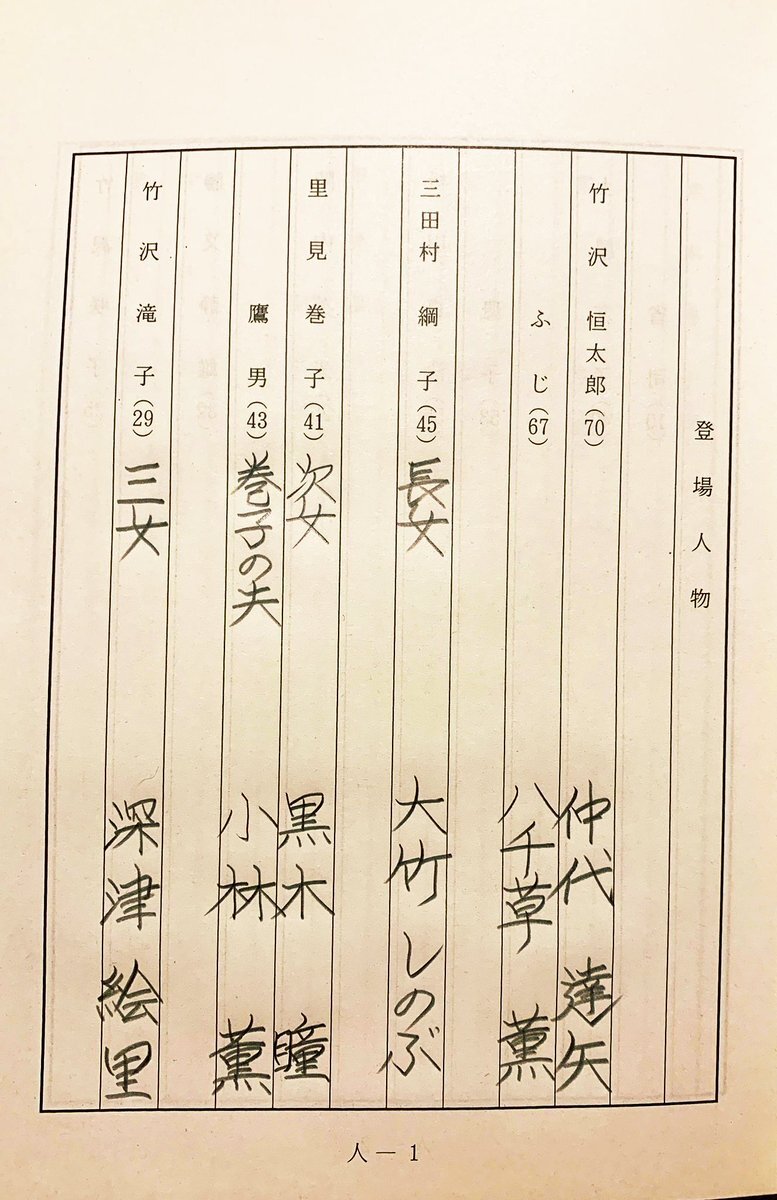 登場人物
竹沢 恒太郎(70) 仲代 達矢
ふじ(67) 八千草 薫
三田村 綱子(45) 長女 大竹 しのぶ
里見 巻子(41) 次女 黒木 瞳
鷹男(43) 巻子の夫 小林 薫
竹沢 滝子(29) 三女 深津 絵里
人―1